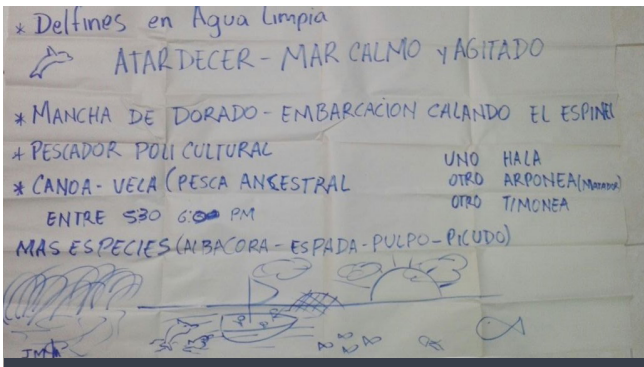 * Delfines en Agua Limpia
ATARDECER - MAR CALMO Y AGITADO
* MANCHA DE DORADO - EMBARCACION CALANDO EL ESPINEL
* PESCADOR POLI CULTURAL
* CANOA - VELA (PESCA ANCESTRAL
ENTRE 530 6:00 PM
UNO HALA
OTRO ARPONEA (MATADOR)
OTRO TIMONEA
MAS ESPECIES (ALBACORA - ESPADA - PULPO - PICUDO)